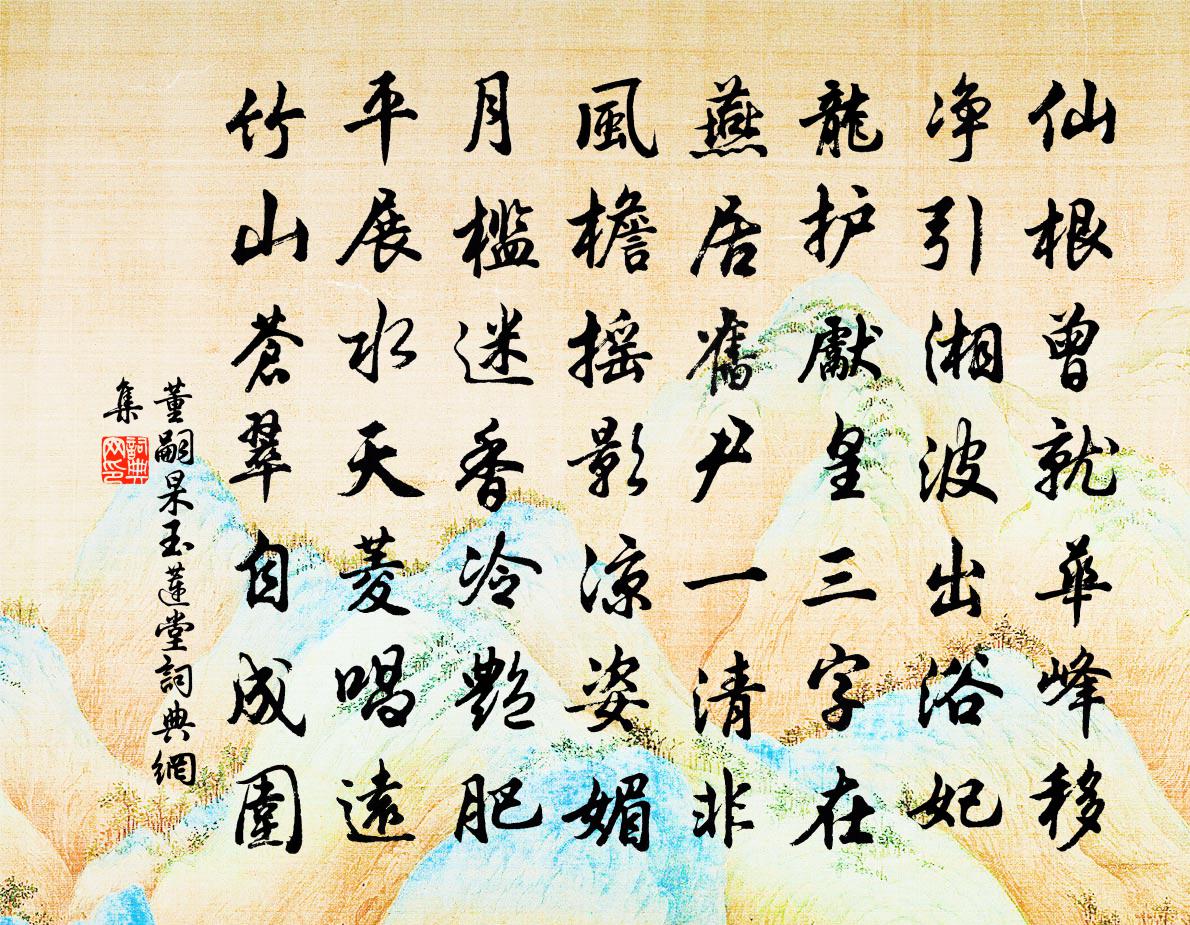 仙根曾就華峰移
净引湘波出浴妃
龍护獻皇三字在
燕居舊尹一清非
風檐摇影凉姿媚
月檻迷香冷艷肥
平展水天菱唱遠
竹山蒼翠自成圍
董嗣杲玉蓮堂詞典網
集
詞典网印